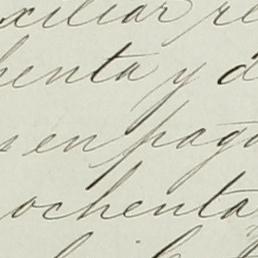 xiliar re
henta y d
en pag
ochenta